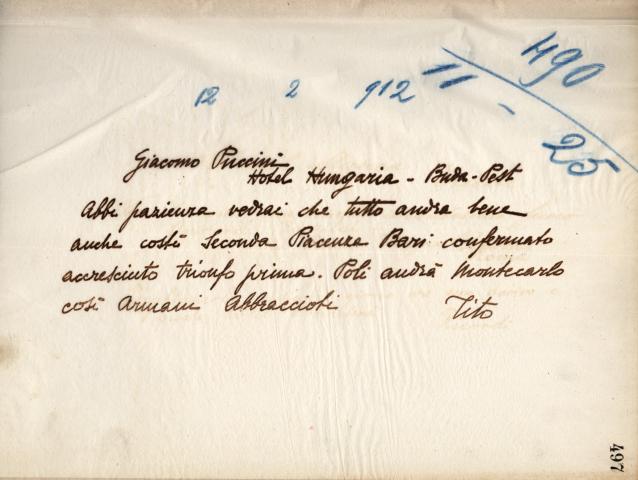 490
12 2 912 11 - 25
Giacomo Puccini
Hotel Hungaria - Buda-Pest
Abbi pazienza vedrai che tutto andra bene
anche costì Seconda Piacenza Bari confermato
accresciuto trionfo prima. Poli andrà Montecarlo
così Armani Abbraccioti Tito
497